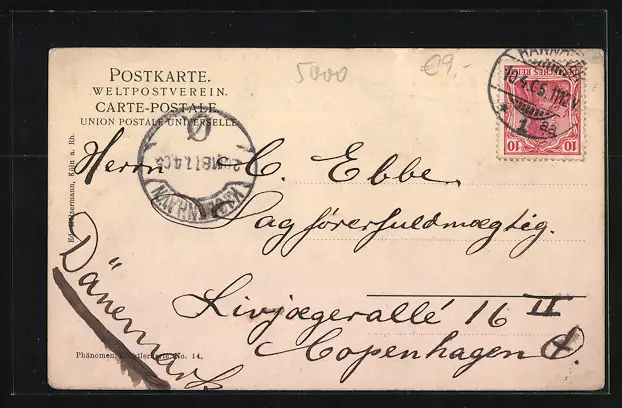 5000
€9,-
POSTKARTE.
WELTPOSTVEREIN.
CARTE-POSTALE
UNION POSTALE UNIVERSELLE
DEUTSCHES REICH
10 10
1
KJØBENHAVN
Ø
Herrn C. Ebbe
Sagførerfuldmægtig.
Livjægerallé 16 II
Copenhagen Ø.
Dänemark
Köln a. Rh.
Phänomen, Künstlerkarte No. 14.